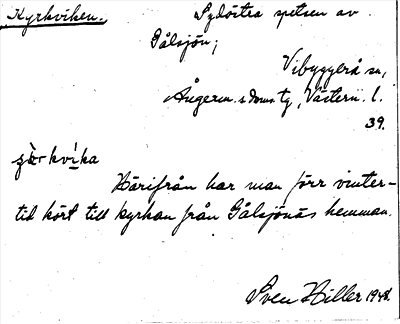 Kyrkviken. Sydöstra spetsen av
Gålsjön;
Vibyggerå sn,
Ångerm. s. doms tg, Västern. l.
39.
kvika
Härifrån har man förr vinter-
tid kört till kyrkan från Gålsjönäs hemman.
Sven Hiller 1948.